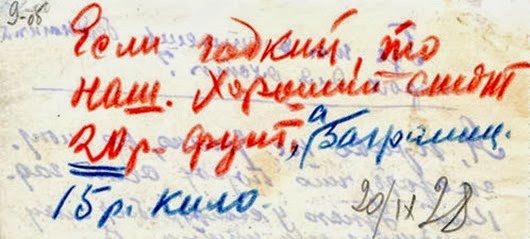 9-08
Если гадкий, то
наш. Хороший стоит
20 р. фунт, а Заграниц.
15 р. кило.
20/IX 28